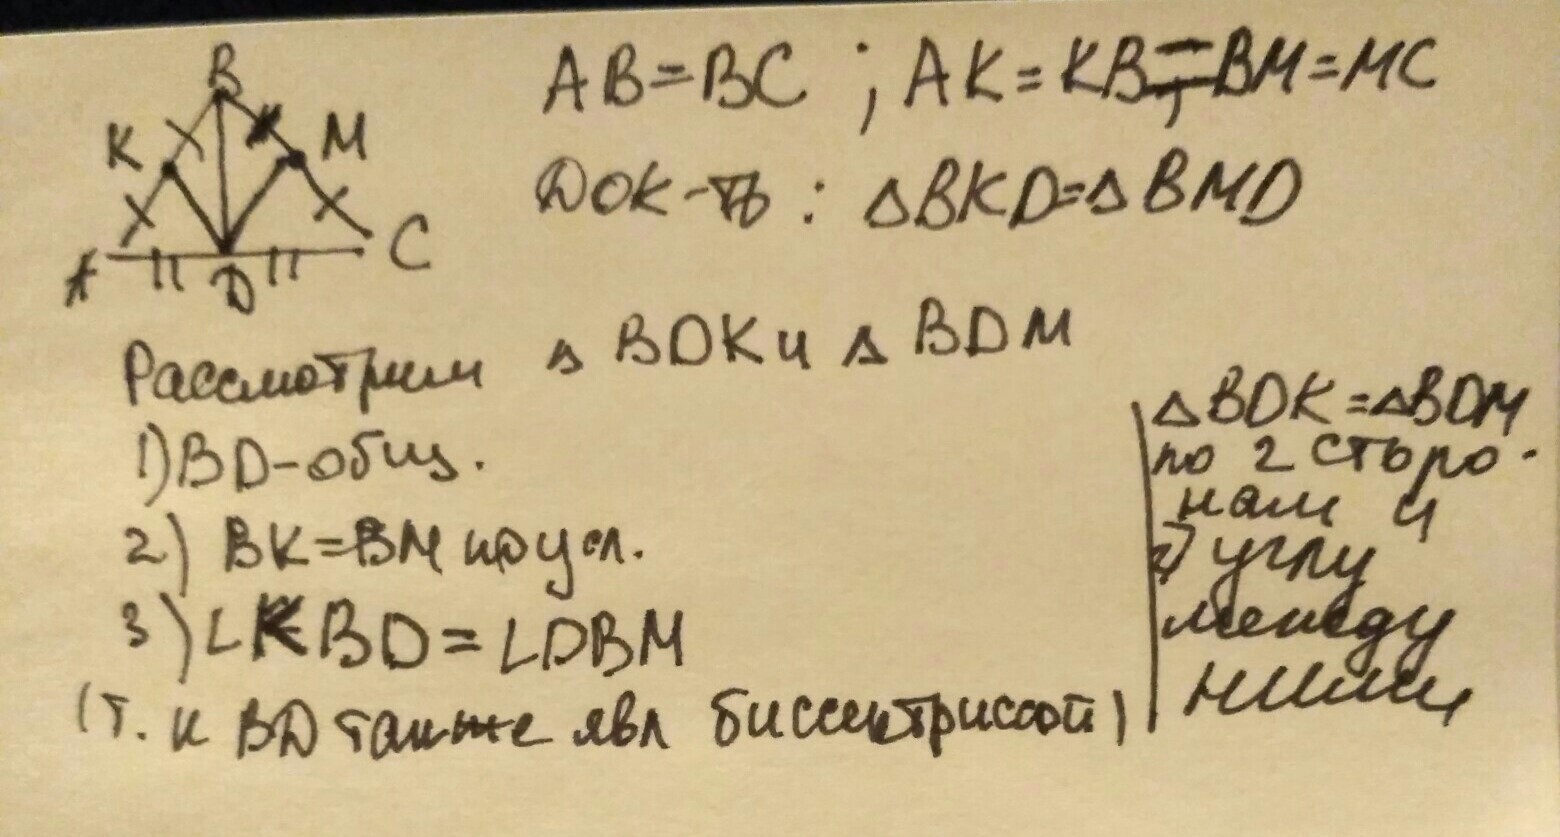 B
K
M
A
D
C
AB=BC ; AK=KB=BM=MC
Док-ть : △BKD=△BMD
Рассмотрим △ BDK и △ BDM
1) BD-общ.
2) BK=BM по усл.
3) ∠KBD=∠DBM
(т. к BD также явл биссектрисой)
△BDK=△BDM
по 2 сторо-
нам и
углу
между
ними